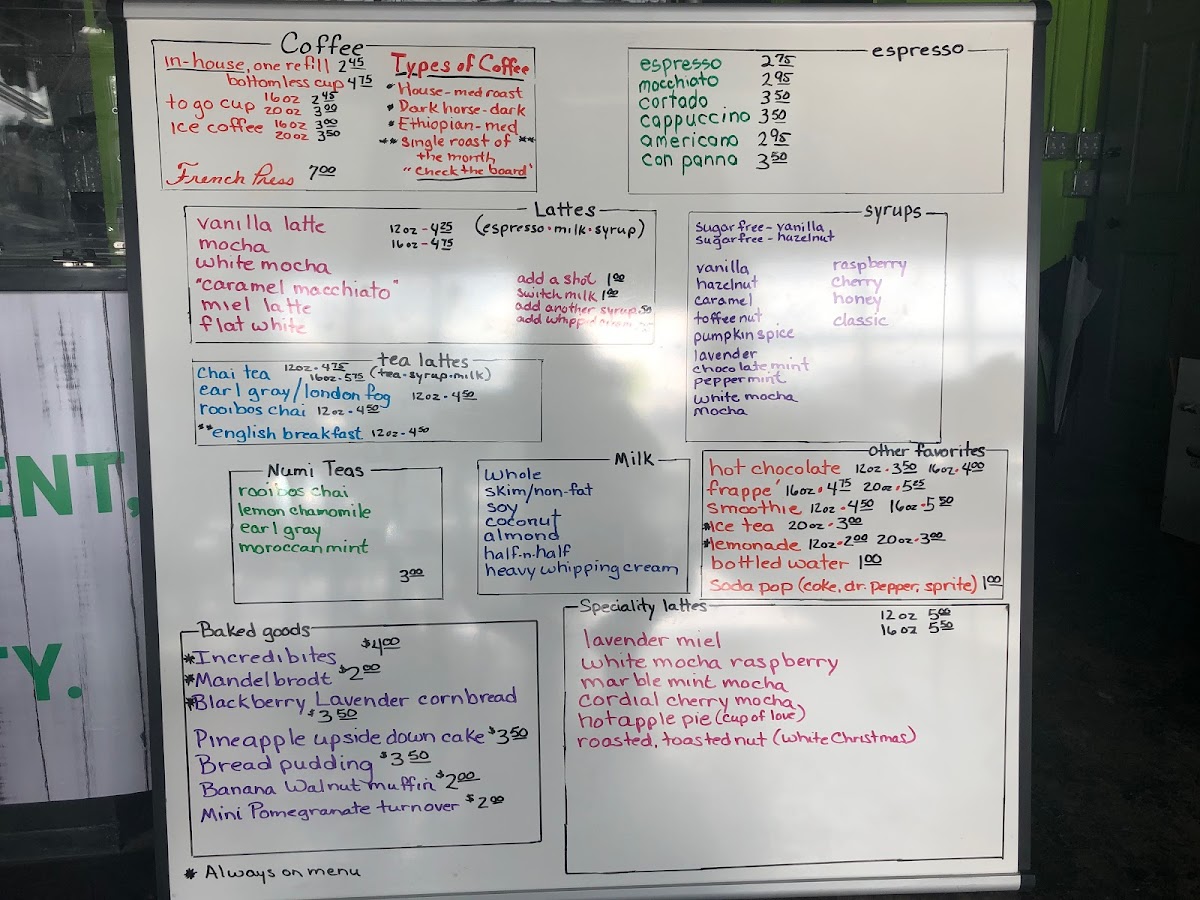 Coffee
in-house, one refill 2 45
bottomless cup 4 75
to go cup 16oz 2 45
20oz 3 00
Ice coffee 16oz 3 00
20oz 3 50
French Press 7 00
Types of Coffee
* House - med roast
* Dark horse - dark
* Ethiopian - med
** single roast of **
the month
"check the board"
espresso
espresso 2 75
mocchiato 2 95
cortado 3 50
cappuccino 3 50
americano 2 95
con panna 3 50
Lattes
(espresso · milk · syrup)
vanilla latte 12oz - 4 25
mocha 16oz - 4 75
white mocha
"caramel macchiato"
miel latte
flat white
add a shot 1 00
switch milk 1 00
add another syrup .50
add whipped
syrups
sugar free - vanilla
sugar free - hazelnut
vanilla
hazelnut
caramel
toffee nut
pumpkin spice
lavender
chocolate mint
peppermint
white mocha
mocha
raspberry
cherry
honey
classic
tea lattes
(tea · syrup · milk)
chai tea 12oz · 4 75
16oz · 5 75
earl gray/london fog 12oz · 4 50
rooibos chai 12oz · 4 50
**english breakfast 12oz · 4 50
Numi Teas
rooibos chai
lemon chamomile
earl gray
moroccan mint
3 00
Milk
Whole
skim/non-fat
soy
coconut
almond
half-n-half
heavy whipping cream
Other favorites
hot chocolate 12oz · 3 50 16oz · 4 00
frappe' 16oz · 4 75 20oz · 5 25
smoothie 12oz · 4 50 16oz · 5 50
*Ice tea 20oz · 3 00
*lemonade 12oz · 2 00 20oz · 3 00
bottled water 1 00
soda pop (coke, dr. pepper, sprite) 1 00
Baked goods
*Incredibites $4 00
*Mandelbrodt $2 00
*Blackberry Lavender cornbread
$3 50
Pineapple upside down cake $3 50
Bread pudding $3 50
Banana Walnut muffin $2 00
Mini Pomegranate turnover $2 00
* Always on menu
Speciality lattes
12oz 5 00
16oz 5 50
lavender miel
white mocha raspberry
marble mint mocha
cordial cherry mocha
hot apple pie (cup of love)
roasted, toasted nut (White Christmas)
ENT,
Y.